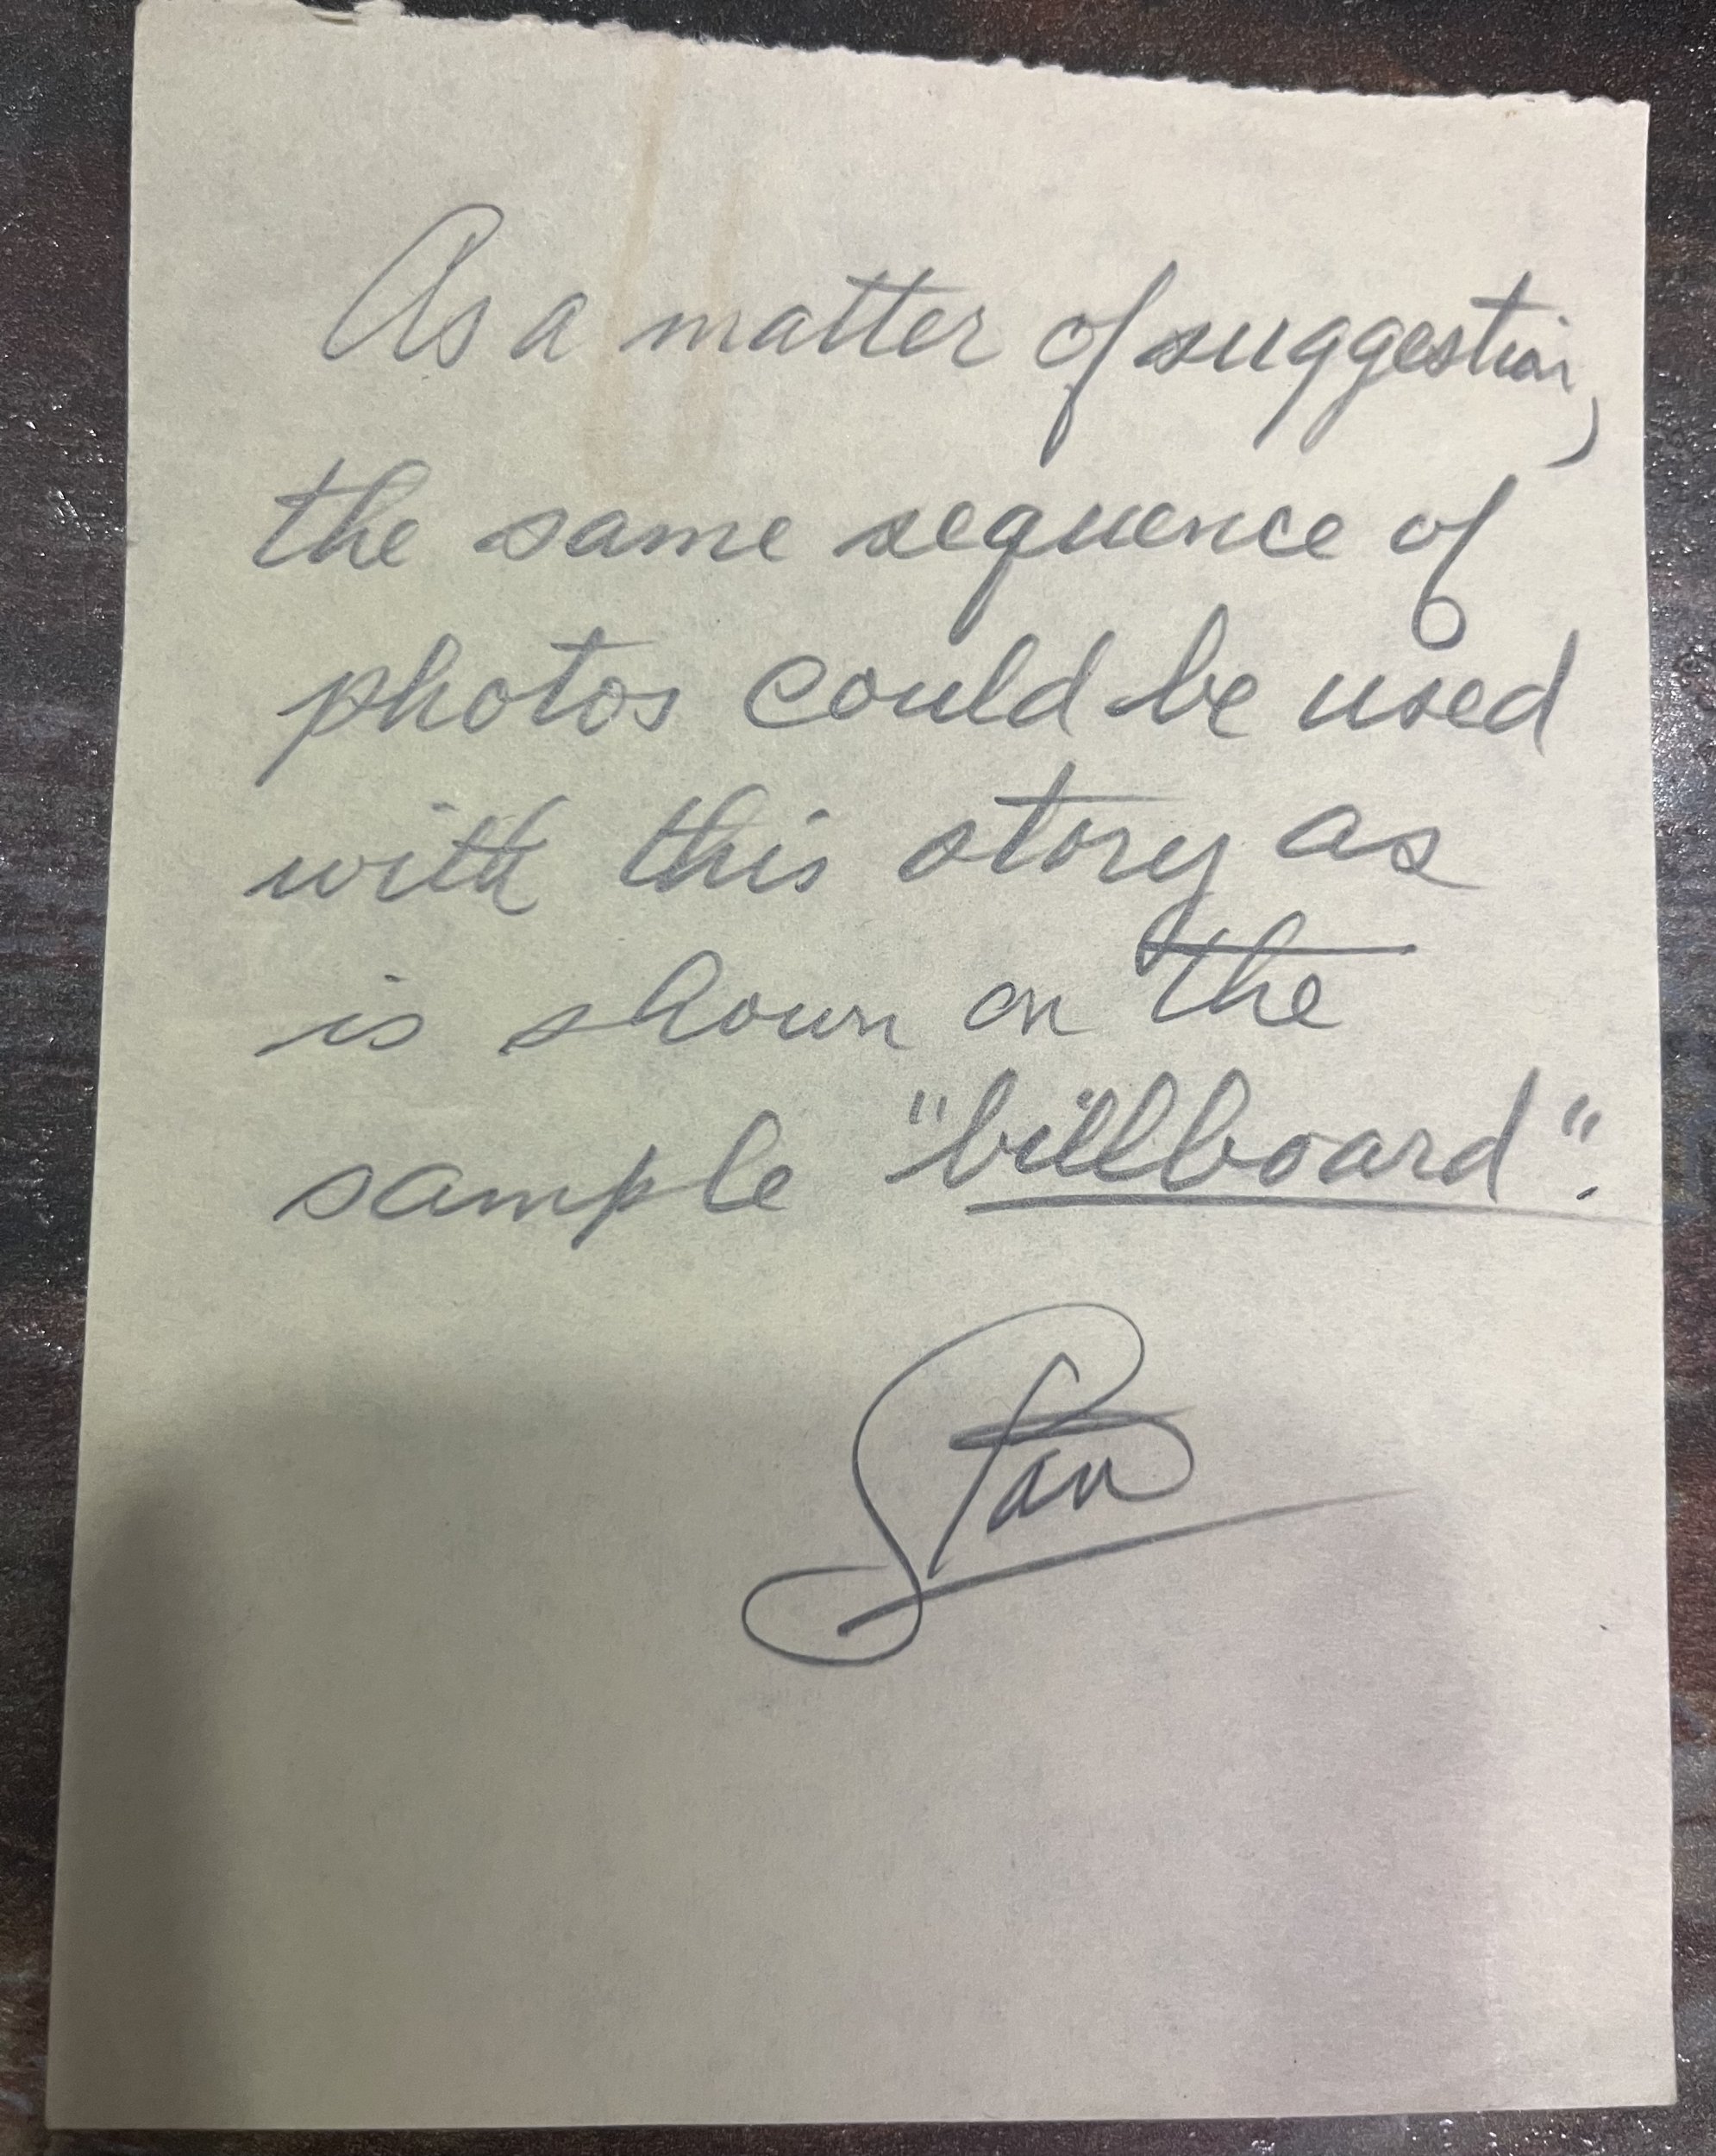 As a matter of suggestion,
the same sequence of
photos could be used
with this story as
is shown on the
sample "billboard".
Stan